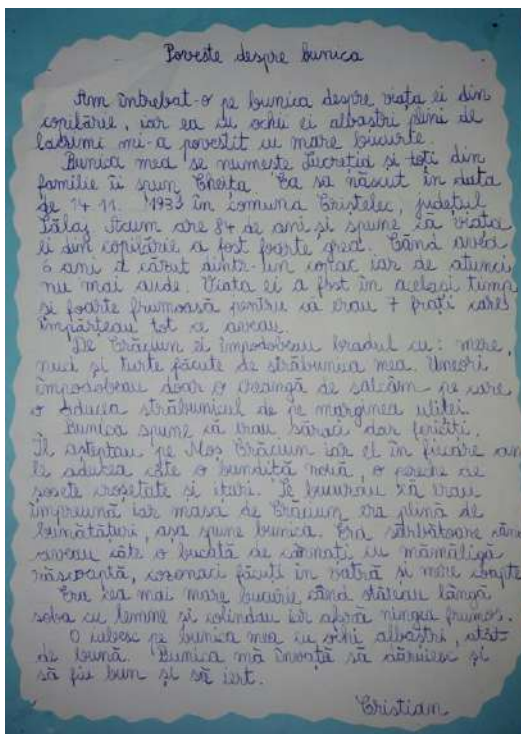 Poveste despre bunica
Am întrebat-o pe bunica despre viața ei din
copilărie, iar ea cu ochii ei albaștri plini de
lacrimi mi-a povestit cu mare bucurie.
Bunica mea se numește Lucreția și toți din
familie îi spun Cheița. Ea sa născut în data
de 14 11. 1933 în comuna Cristelec, județul
Sălaj. Acum are 84 de ani și spune că viața
ei din copilărie a fost foarte grea. Când avea
6 ani a căzut dintr-un copac iar de atunci
nu mai aude. Viața ei a fost în același timp
și foarte frumoasă pentru că erau 7 frați care
împărțeau tot ce aveau.
De Crăciun ei împodobeau bradul cu: mere,
nuci și turte făcute de străbunica mea. Uneori
împodobeau doar o creangă de salcâm pe care
o aducea străbunicul de pe marginea uliței.
Bunica spune că erau săraci dar fericiți.
Îl așteptau pe Moș Crăciun iar el în fiecare an
le aducea câte o bundiță nouă, o pereche de
șosete croșetate și ițari. Se bucurau că erau
împreună iar masa de Crăciun era plină de
bunătățuri, așa spune bunica. Era sărbătoare când
aveau câte o bucată de cârnați cu mămăligă
răscoaptă, cozonaci făcuți în vatră și mere coapte.
Era cea mai mare bucurie când stăteau lângă
soba cu lemne și colindau iar afară ningea frumos.
O iubesc pe bunica mea cu ochi albaștri, atât
de bună. Bunica mă învață să dăruiesc și
să fiu bun și să iert.
Cristian